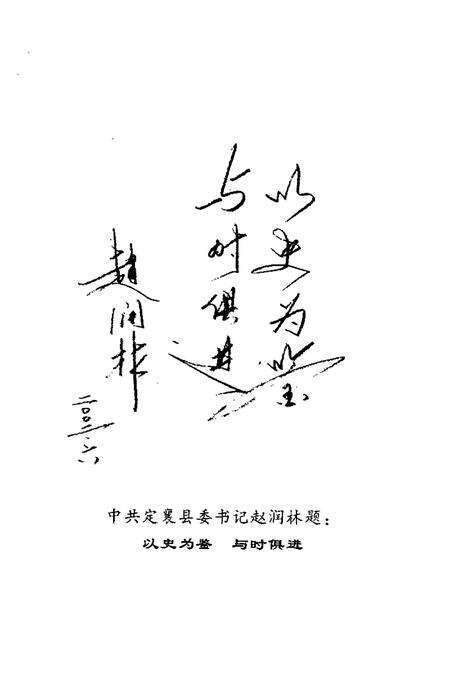 以史为鉴
与时俱进
赵润林
二〇〇二.六
中共定襄县委书记赵润林题：
以史为鉴　与时俱进